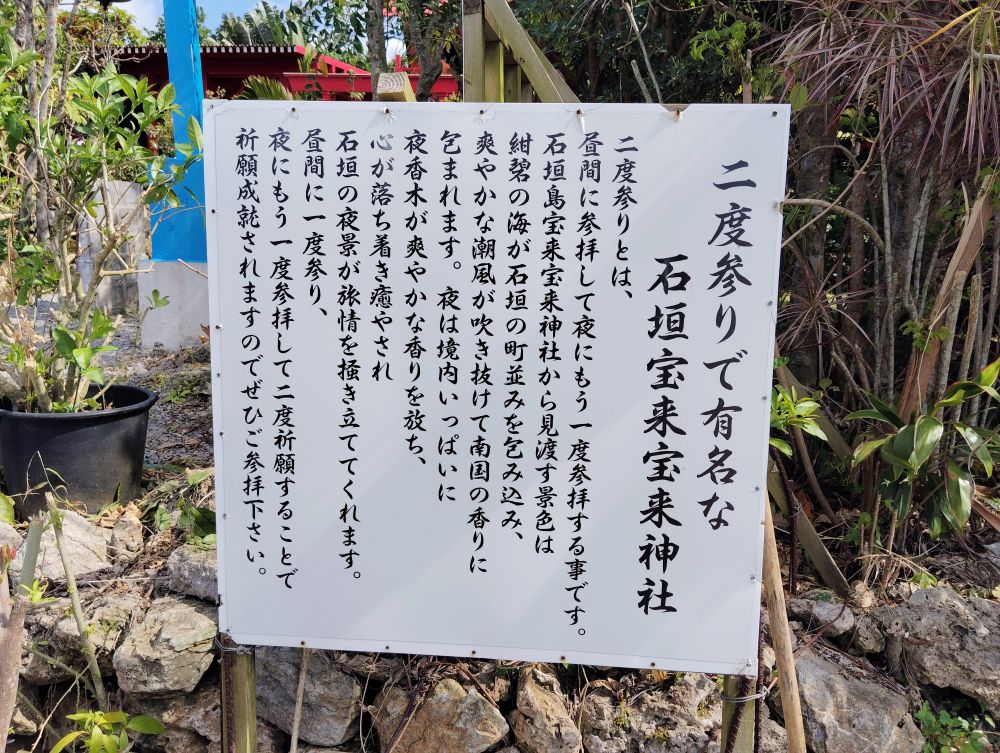 二度参りで有名な
石垣宝来宝来神社
二度参りとは、
昼間に参拝して夜にもう一度参拝する事です。
石垣島宝来宝来神社から見渡す景色は
紺碧の海が石垣の町並みを包み込み、
爽やかな潮風が吹き抜けて南国の香りに
包まれます。夜は境内いっぱいに
夜香木が爽やかな香りを放ち、
心が落ち着き癒やされ
石垣の夜景が旅情を掻き立ててくれます。
昼間に一度参り、
夜にもう一度参拝して二度祈願することで
祈願成就されますのでぜひご参拝下さい。